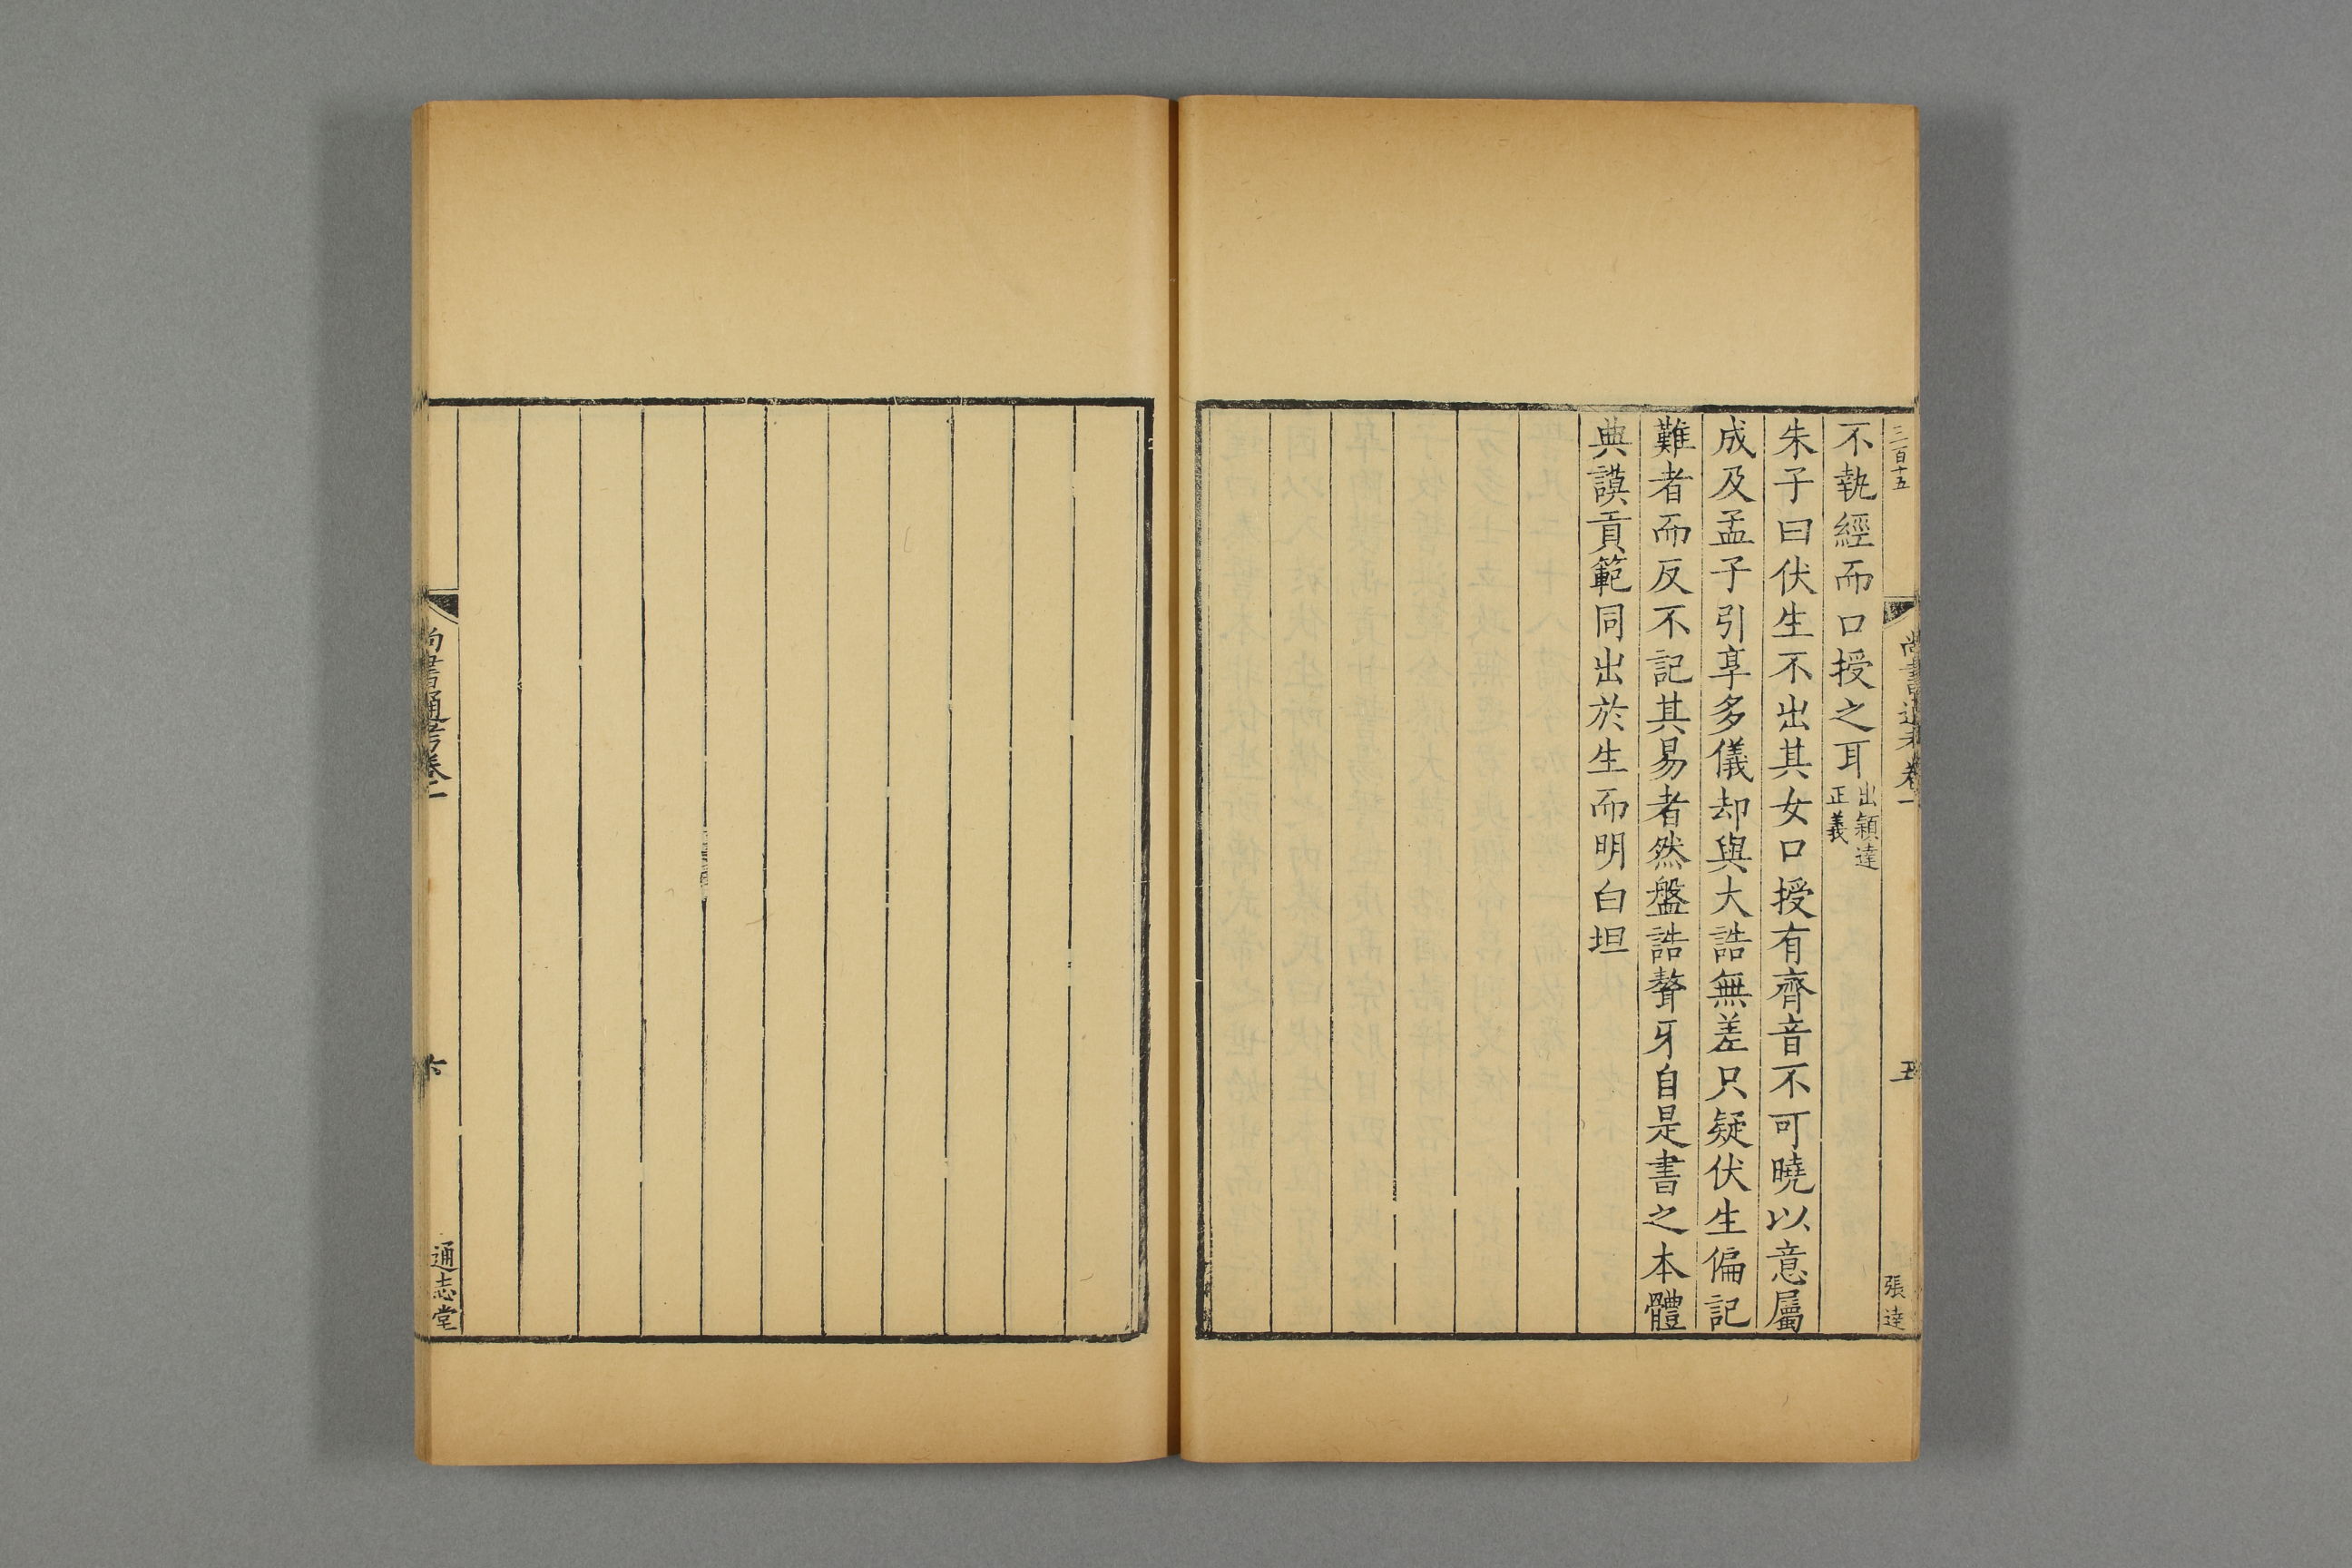 三百十五
尚書通考卷一
五
張達
不執經而口授之耳出穎達正義
朱子曰伏生不出其女口授有齊音不可曉以意屬
成及孟子引享多儀却與大誥無差只疑伏生偏記
難者而反不記其易者然盤誥聱牙自是書之本體
典謨貢範同出於生而明白坦
尚書通考卷一
六
通志堂